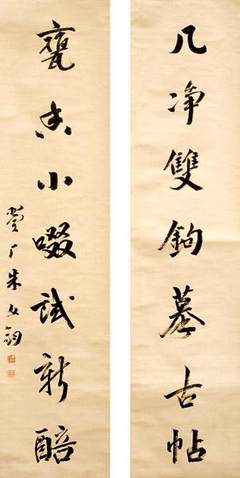 几净雙鉤摹古帖
甕香小啜試新醅
翼厂朱文鈞